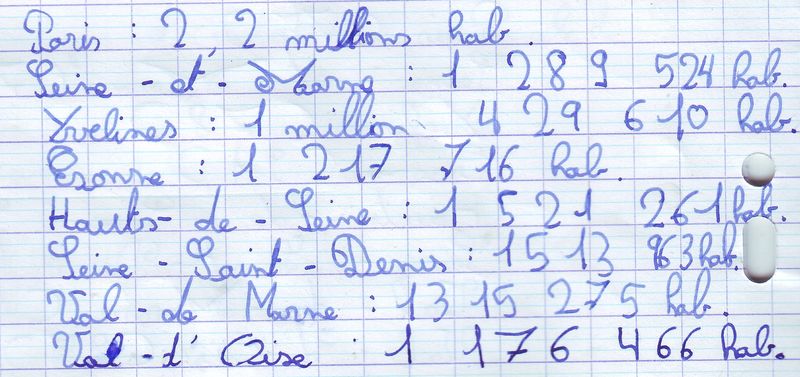 Paris : 2, 2 millions hab.
Seine - et - Marne : 1 289 524 hab.
Yvelines : 1 million 429 610 hab.
Esonne : 1 217 716 hab.
Hauts- de - Seine : 1 521 261 hab.
Seine - Saint - Denis : 1513 963 hab.
Val - de Marne : 13 15 275 hab.
Val - d' Oise : 1 176 466 hab.